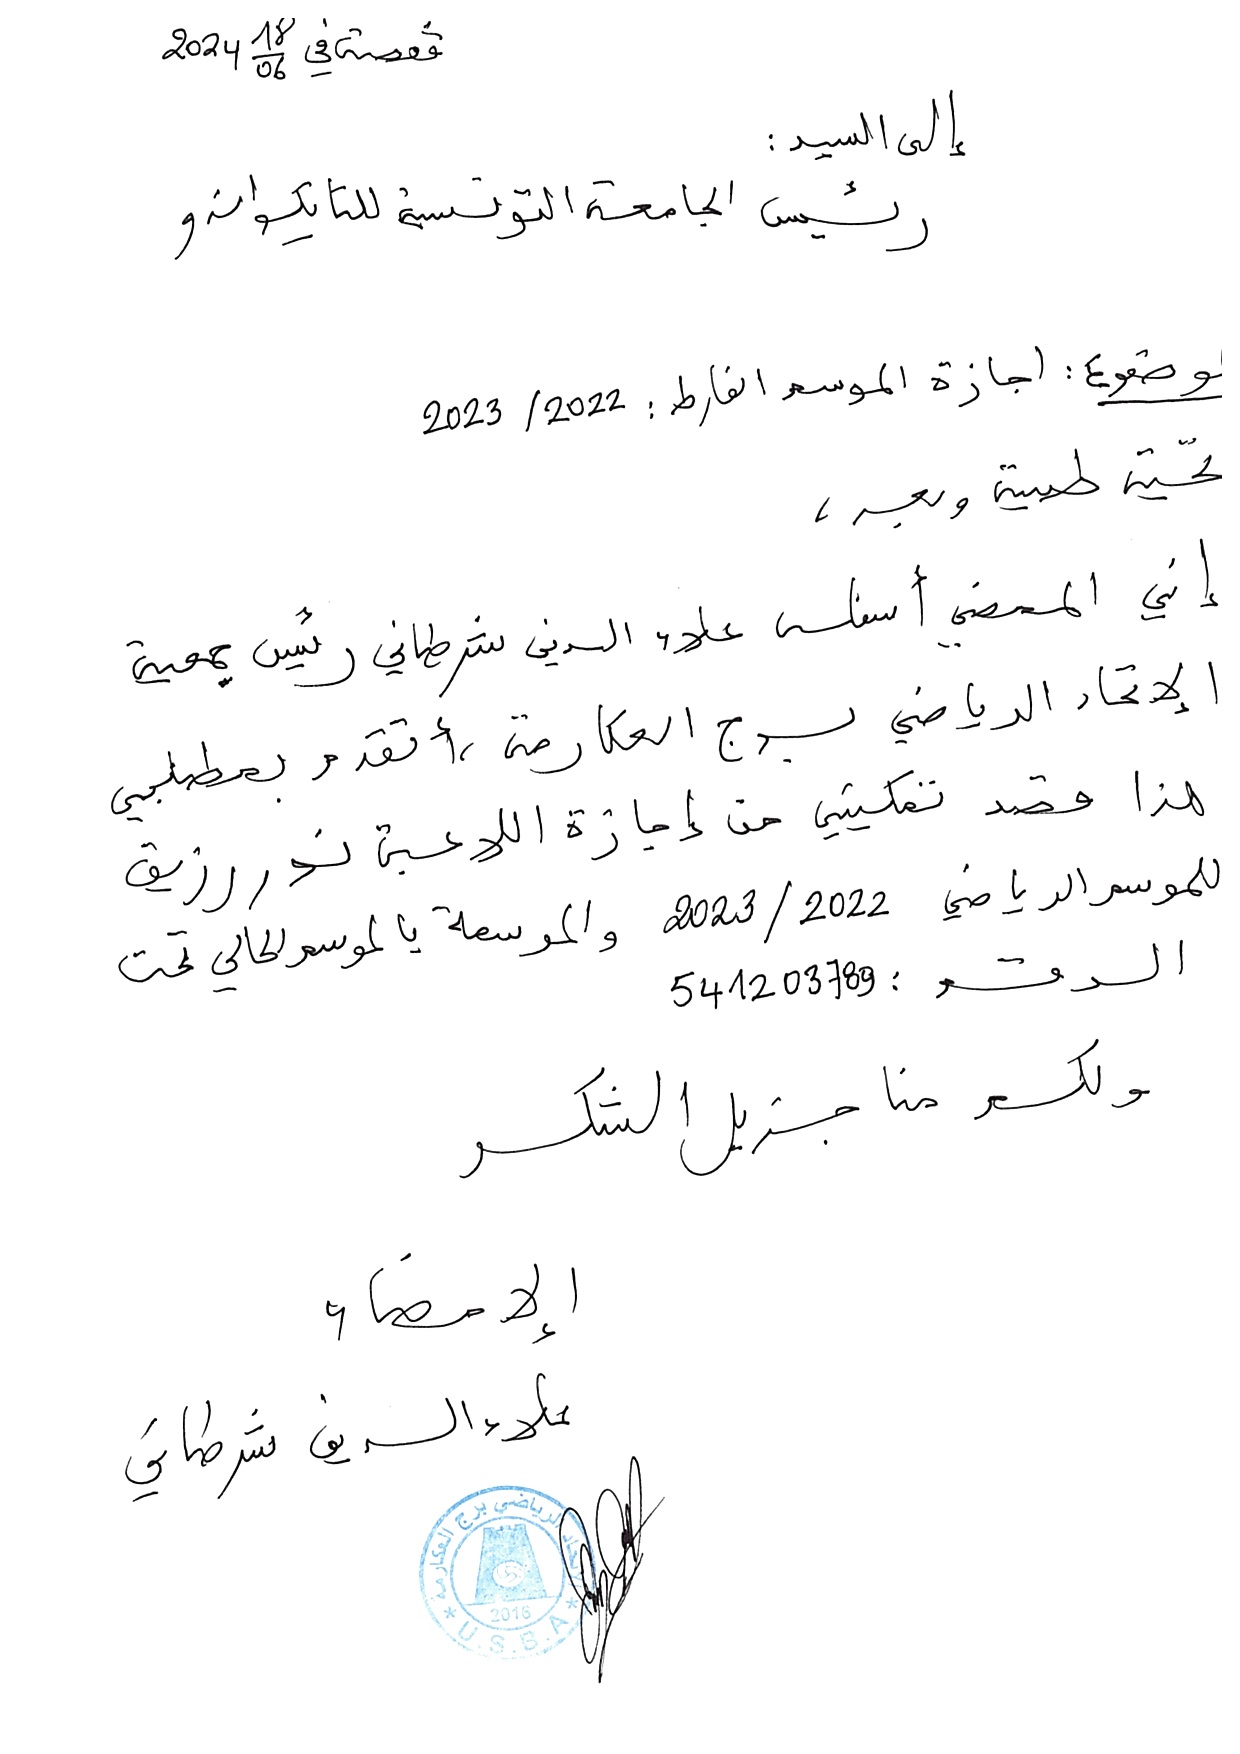 قفصة في 18/06 2024
إلى السيد :
رئيس الجامعة التونسية للتايكواندو
لموضوع : اجازة الموسم الفارط : 2022/2023
تحيّة طيبة وبعد ،
إني الممضي أسفله علاء الدين شرطاني رئيس جمعية
الإتحاد الرياضي ببرج العكارمة ، أتقدم بمطلبي
هذا قصد تمكيني من إجازة اللاعبة نور رزيق
للموسم الرياضي 2022/2023 والموسعة بالموسم الحالي تحت
الرقم : 541203789
ولكم منا جزيل الشكر
الإمضاء
علاء الدين شرطاني
الاتحاد الرياضي برج العكارمة
2016
* U.S.B.A *